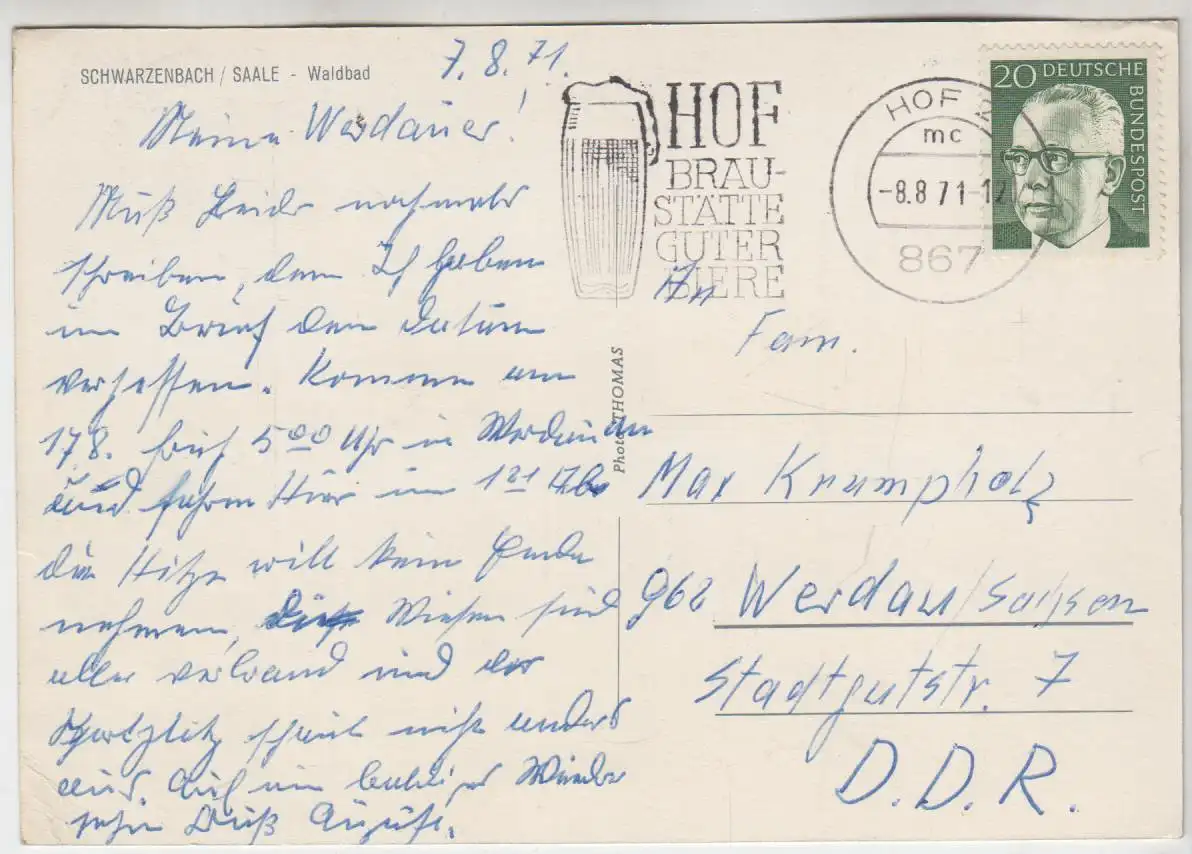 SCHWARZENBACH / SAALE - Waldbad
7.8.71.
Meine Werdauer!
Muß Leider nochmals
schreiben, denn Ich haben
im Brief den Datum
vergessen. Kommen am
178. früh 5 00 Uhr in Werdau an
und fahren Hier um 1 21 Uhr ab
die Hitze will kein Ende
nehmen, Wiesen sind
alles verbrand und der
scheint nicht anders
aus. Auf ein baldiges Wieder
sehn Gruß
HOF
BRAU-
STÄTTE
GUTER
BIERE
HOF 2
mc
-8.8.71-12
867
20 DEUTSCHE
BUNDESPOST
Photo: THOMAS
An
Fam.
Max Krumpholz
962 Werdau/Sachsen
Stadtgutstr. 7
D.D.R.